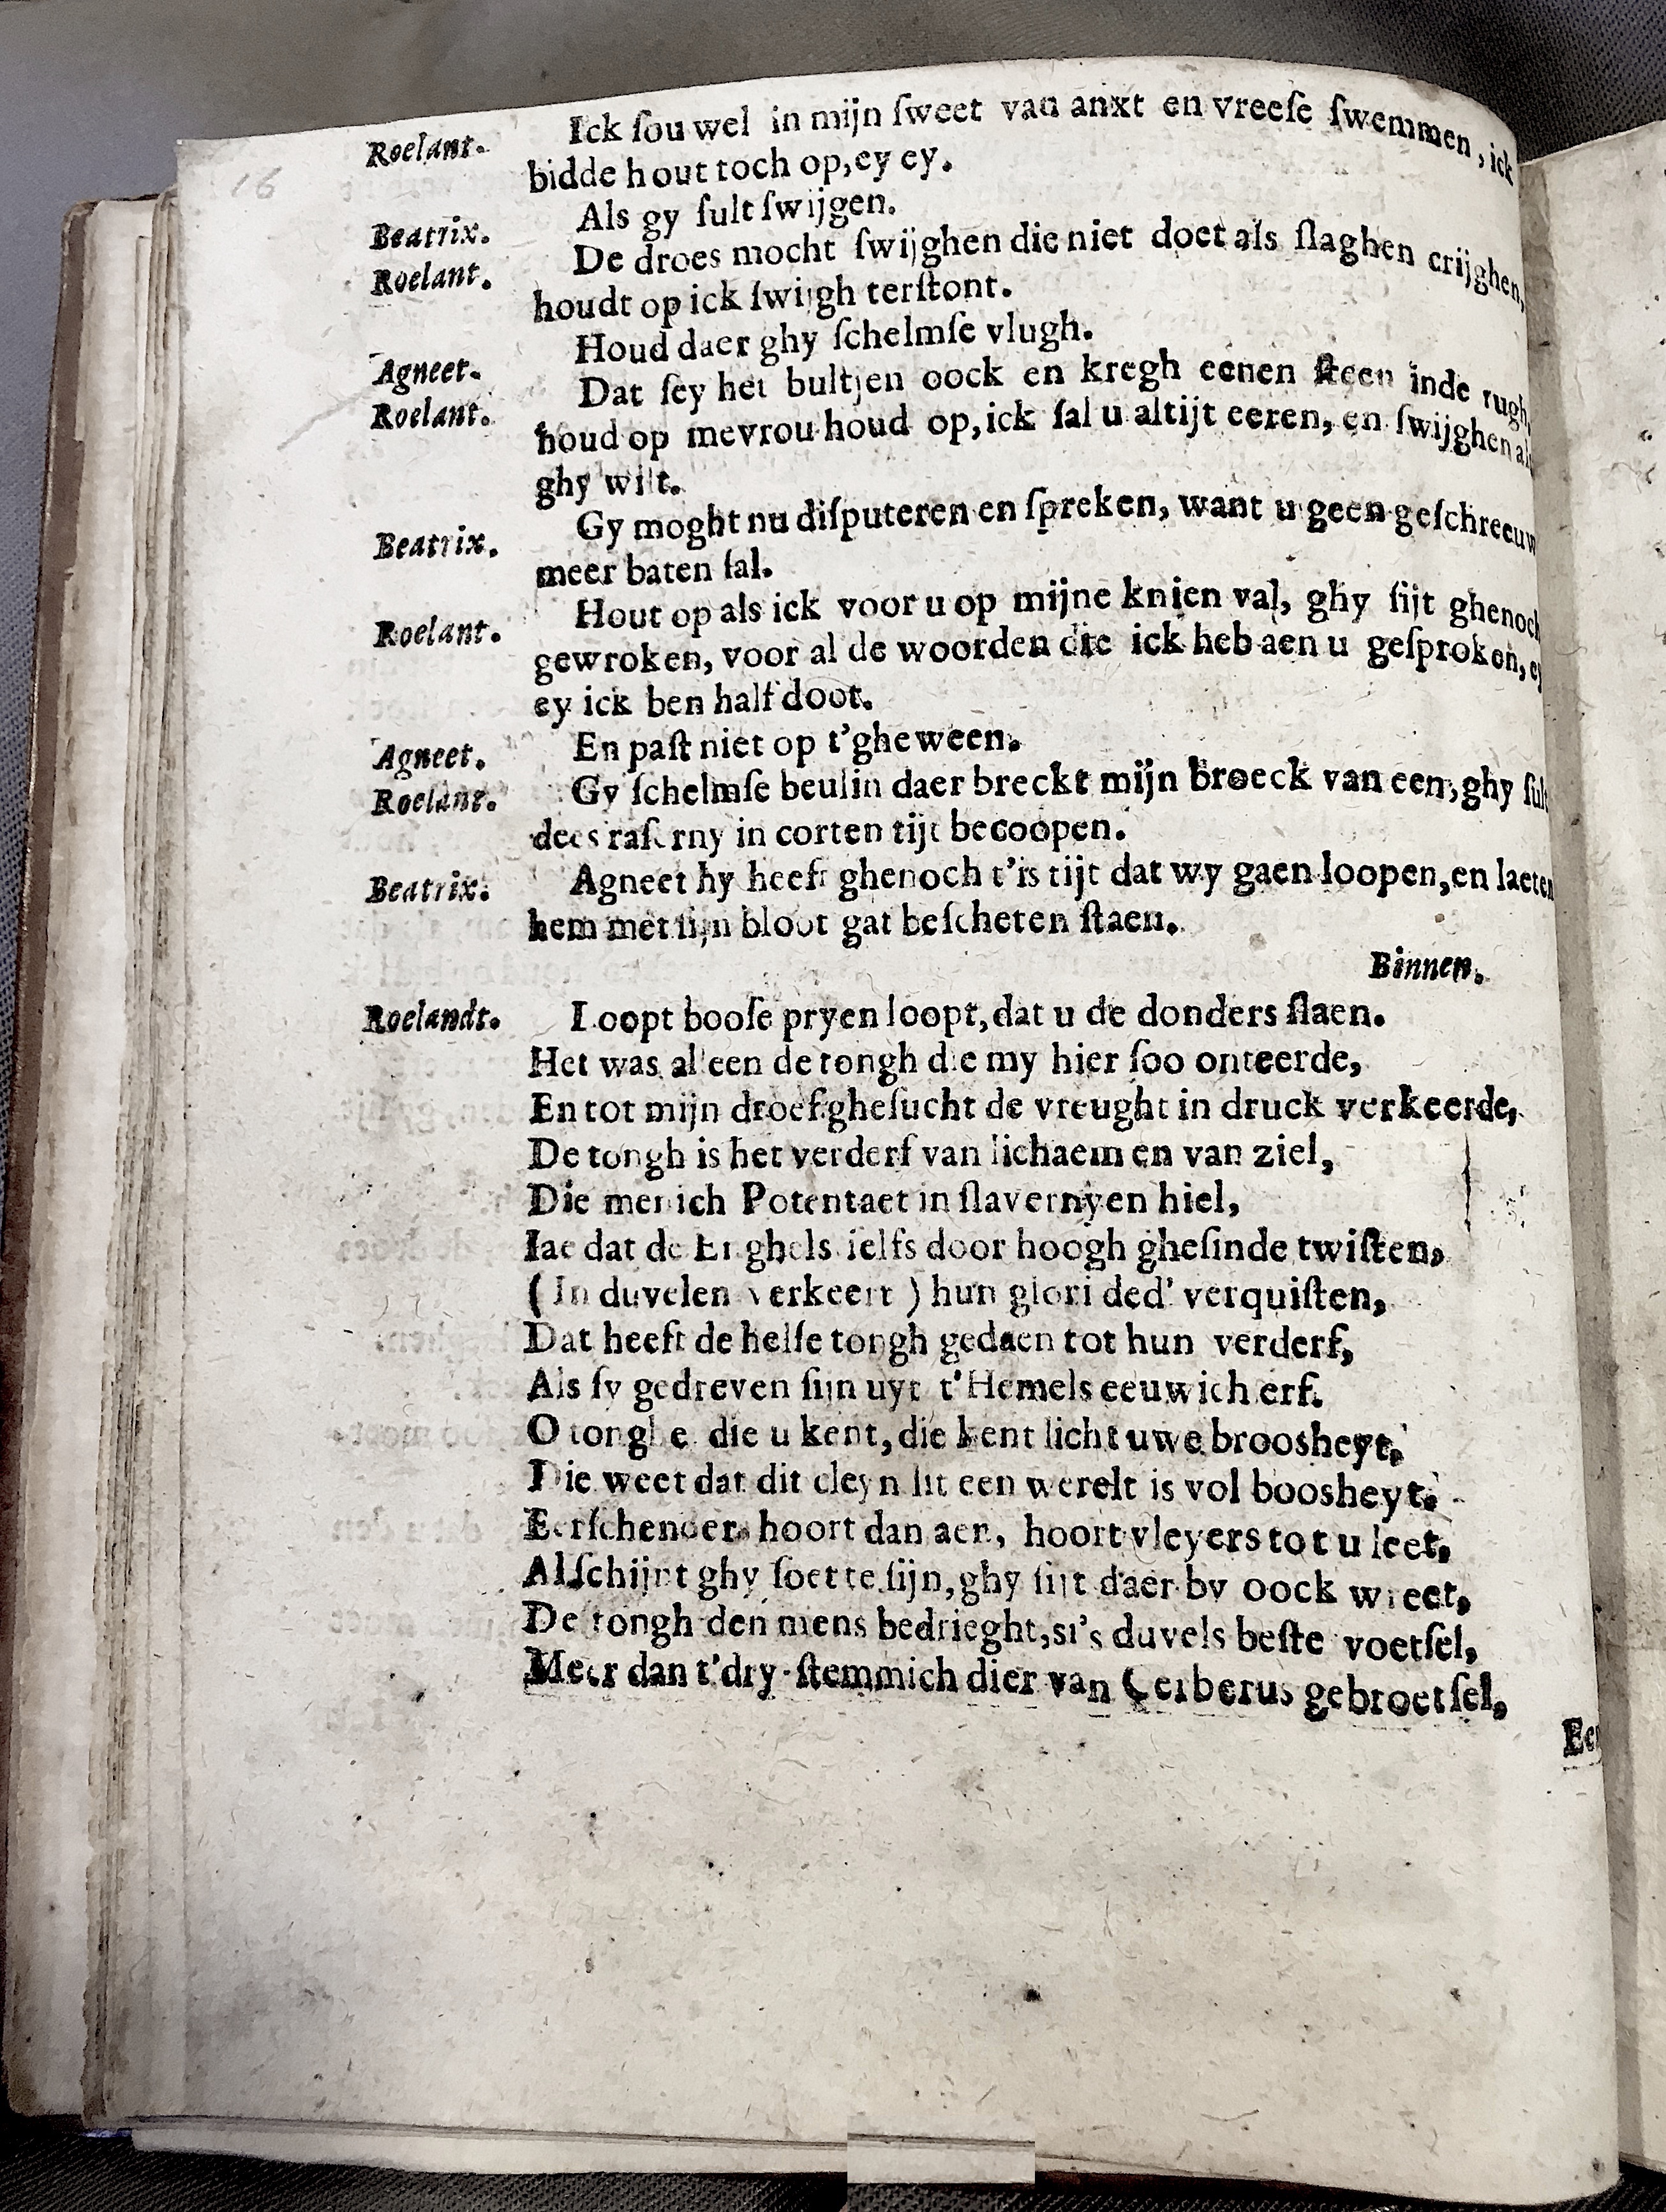 16
Roelant. Ick ſou wel in mijn ſweet van anxt en vreeſe ſwemmen, ick
bidde hout toch op, ey ey.
Beatrix. Als gy ſult ſwijgen.
Roelant. De droes mocht ſwijghen die niet doet als ſlaghen crijghen,
houdt op ick ſwijgh terſtont.
Agneet. Houd daer ghy ſchelmſe vlugh.
Roelant. Dat ſey het bultjen oock en kregh eenen ſteen inde rugh,
houd op mevrou houd op, ick ſal u altijt eeren, en ſwijghen als
ghy wilt.
Beatrix. Gy moght nu diſputeren en ſpreken, want u geen geſchreeuw
meer baten ſal.
Roelant. Hout op als ick voor u op mijne knien val, ghy ſijt ghenoch
gewroken, voor al de woorden die ick heb aen u geſproken, ey
ey ick ben half doot.
Agneet. En paſt niet op t'gheween.
Roelant. Gy ſchelmſe beulin daer breckt mijn broeck van een, ghy ſult
dees raſerny in corten tijt becoopen.
Beatrix. Agneet hy heeft ghenoch t'is tijt dat wy gaen loopen, en laeten
hem met sijn bloot gat beſcheten ſtaen.
Binnen.
Roelandt. Loopt booſe pryen loopt, dat u de donders ſlaen.
Het was alleen de tongh die my hier ſoo onteerde,
En tot mijn droef gheſucht de vreught in druck verkeerde,
De tongh is het verderf van lichaem en van ziel,
Die menich Potentaet in ſlavernyen hiel,
Iae dat de Enghels ſelfs door hoogh gheſinde twiſten,
( In duvelen verkeert ) hun glori ded' verquiſten,
Dat heeft de helſe tongh gedaen tot hun verderf,
Als ſy gedreven ſijn uyt t'Hemels eeuwich erf.
O tonghe die u kent, die kent licht uwe broosheyt,
Die weet dat dit cleyn lit een werelt is vol boosheyt.
Eerſchender hoort dan aen, hoort vleyers tot u leet,
Alſchijnt ghy ſoet te ſijn, ghy ſijt daer by oock wreet,
De tongh den mens bedrieght, si's duvels beſte voetſel,
Meer dan t'dry-ſtemmich dier van Cerberus gebroetſel,